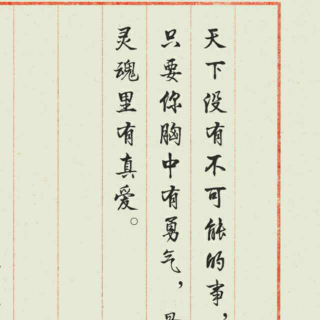 天下没有不可能的事，
只要你胸中有勇气，
灵魂里有真爱。